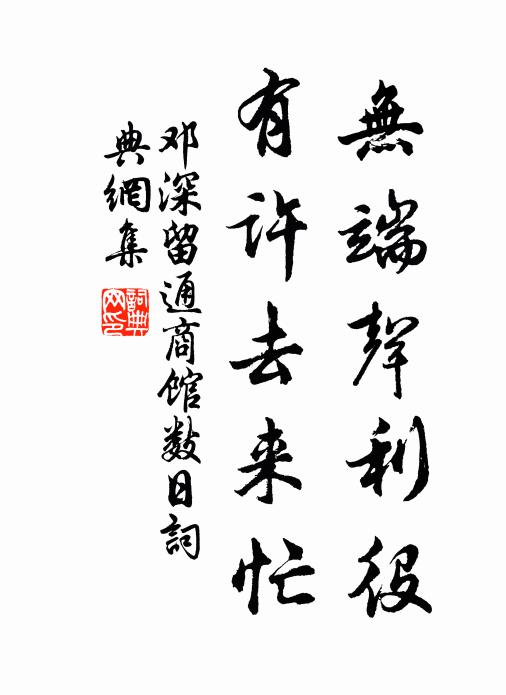 無端聲利役
有許去来忙
邓深留通商館数日詞
典網集
詞典
网印